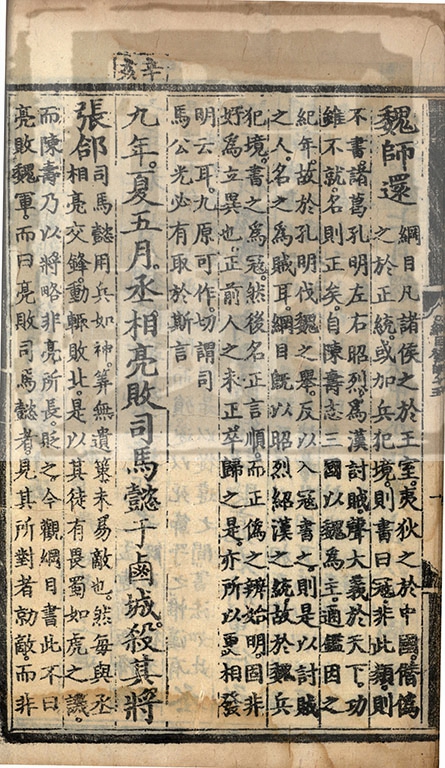 辛亥
魏師還
綱目凡諸侯之於王室。夷狄之於中國。僭偽
之於正統。或加兵犯境。則書曰冦。非此類。則
不書。諸葛孔明左右昭烈。爲漢討賊。聲大義於天下。功
雖不就。名則正矣。自陳壽志三國。以魏爲主。通鑑因之
紀年。故於孔明伐魏之舉。反以入冦書之。則是以討賊
之人。名之爲賊耳。綱目旣以昭烈紹漢之統。故於魏兵
犯境。書之爲冦。然後名正言順。而正偽之辨始明。固非
好爲立異也。正前人之未正。卒歸之是。亦所以更相發
明云耳。九原可作。切謂司
馬公光必有取於斯言
九年。夏五月。丞相亮敗司馬懿于鹵城。殺其將
張郃
司馬懿用兵如神。筭無遺策。未易敵也。然每與丞
相亮交鋒。動輒敗北。是以其徒有畏蜀如虎之譏。
而陳壽乃以將略非亮所長。貶之。今觀綱目書此。不曰
亮敗魏軍。而曰亮敗司馬懿者。見其所對者勍敵。而非